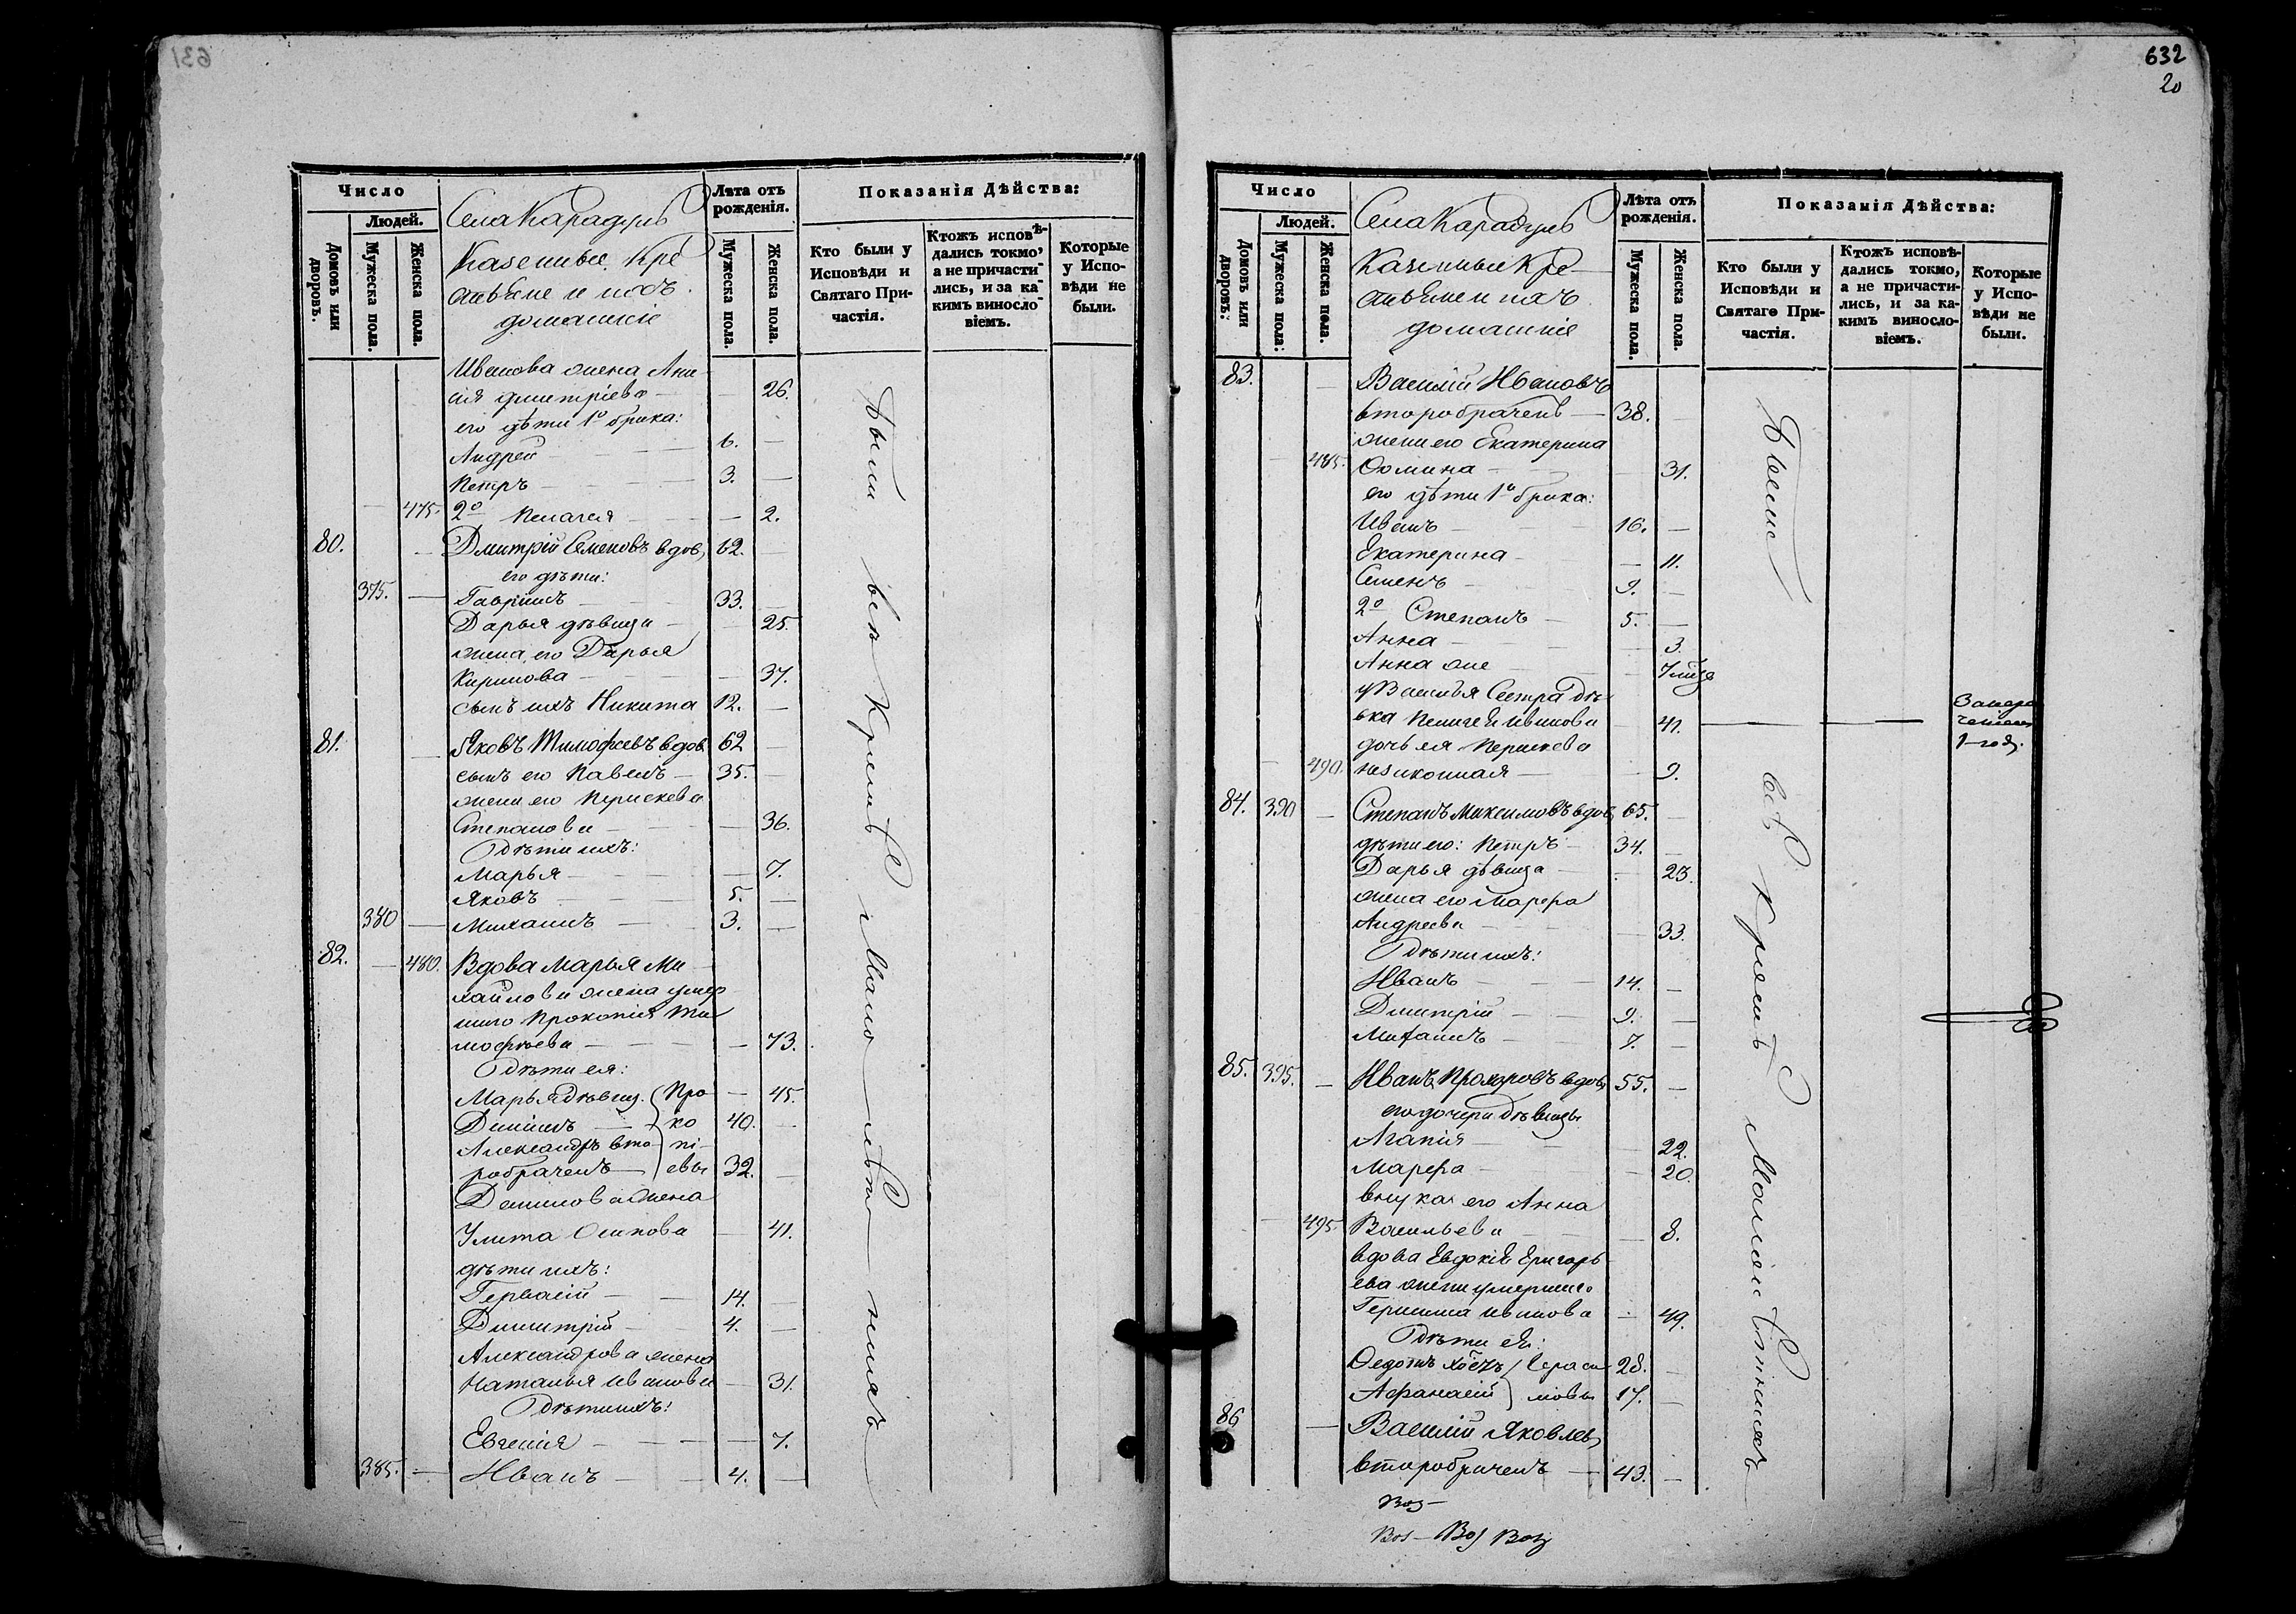 631
Число
Людей.
Домовъ или дворовъ.
Мужеска пола.
Женска пола.
Села Карадулъ
Казенные Кре
стьяне и ихъ
домашніе
Лѣта отъ рожденія.
Мужеска пола.
Женска пола.
Показанія Дѣйства:
Кто были у Исповѣди и Святаго При-частія.
Ктожъ исповѣ-дались токмо, а не причасти-лись, и за ка-кимъ винословіемъ.
Которые у Испо-вѣди не были.
Иванова жена Ани
сія Дмитріева — — 26.
его дѣти 1го брака:
Андрей — 6. —
Петръ — 3. —
— 475. 2го Пелагея — — 2.
80. — Дмитрій Семеновъ вдов, 62. —
его дѣти:
375. — Гавріилъ — 33.
Дарья дѣвица — — 25.
жена его Дарья
Кирилова — — 37.
сынъ ихъ Никита 12. —
81. — Яковъ Тимофеевъ вдов. 62 —
сынъ его Павелъ — 35. —
жена его Параскева
Степанова — — 36.
Дѣти ихъ:
Марья — — 7.
Яковъ — 5. —
380 — Михаилъ — 3. —
82. — 480. Вдова Марья Ми
хайлова жена умер
шаго Прокопія Ти
мофѣева — — 73.
Дѣти ея:
Марья дѣвиц. Про — 45.
Даніилъ — ко 40. —
Александръ вто пі
робраченъ — евы 32. —
Данилова жена
Улита Осипова — 41.
дѣти ихъ:
Гервасій — 14. —
Димитрій — 4. —
Александрова жена
Наталья Иванова — 31.
Дѣти ихъ:
Евгенія — — 7.
385. — Иванъ — 4. —
были всѣ кромѣ
632
20
Число
Людей.
Домовъ или дворовъ.
Мужеска пола.
Женска пола.
Села Карадулъ
Казенные Кре-
стьяне и ихъ
домашніе
Лѣта отъ рожденія.
Мужеска пола.
Женска пола.
Показанія Дѣйства:
Кто были у Исповѣди и Святаго При-частія.
Ктожъ исповѣ-дались токмо, а не причасти-лись, и за ка-кимъ винословіемъ.
Которые у Испо-вѣди не были.
83. — Василій Ивановъ
второбраченъ — 38. —
жена его Екатерина
— 485. Фомина — — 31.
его дѣти 1го брака:
Иванъ — 16. —
Екатерина — — 11.
Семенъ — 9. —
2го Степанъ — 5. —
Анна — — 3.
Анна же 7 мѣся
у Василья Сестра дѣ
вка Пелагея Иванова — 41. — —
дочь ея Параскева
— 490. незаконная — — 9.
1 годъ.
84. 390 — Степанъ Максимовъ вдов, 65. —
дѣти его: Петръ — 34. —
Дарья дѣвица — — 23.
жена его Марфа
Андреева — — 33.
Дѣти ихъ:
Иванъ — 14. —
Дмитрій — 9. —
Михаилъ — 7. —
85. 395. — Иванъ Прохоровъ вдов, 55. —
его дочери дѣвицы
Агапія — — 22.
Марфа — — 20.
внука его Анна
— 495. Васильева — — 8.
вдова Евдокія Григорь
ева жена умершаго
Герасима Иванова — 49.
Дѣти ея:
Федотъ холостъ Гераси 28. —
Афанасій мовы 17. —
86 — Василій Яковлев,
второбраченъ — 43. —
были всѣ кромѣ Малолѣтнихъ
Воз-
Воз- Воз Воз